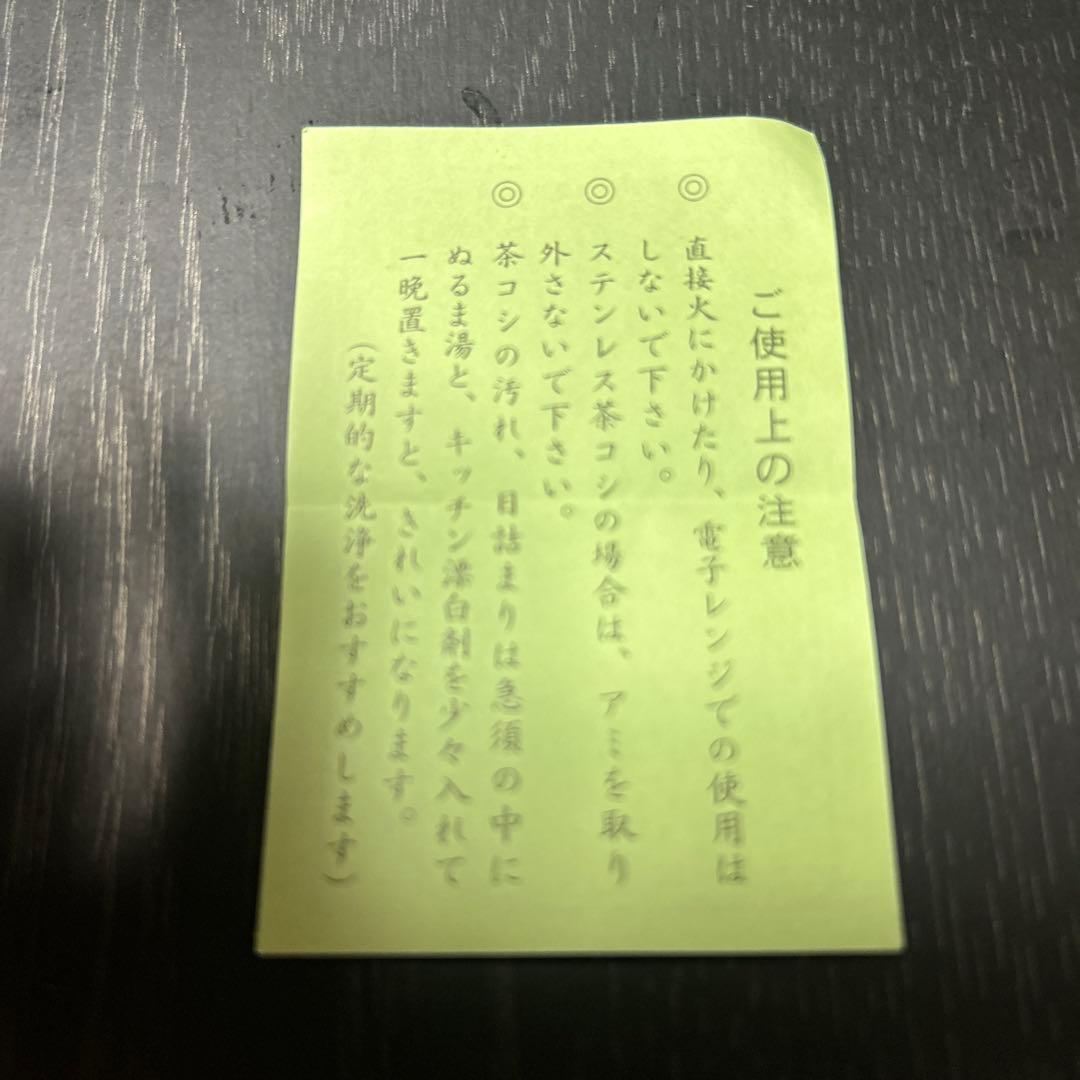 ご使用上の注意
◎ 直接火にかけたり、電子レンジでの使用は
しないで下さい。
◎ ステンレス茶コシの場合は、アミを取り
外さないで下さい。
◎ 茶コシの汚れ、目詰まりは急須の中に
ぬるま湯と、キッチン漂白剤を少々入れて
一晩置きますと、きれいになります。
(定期的な洗浄をおすすめします)